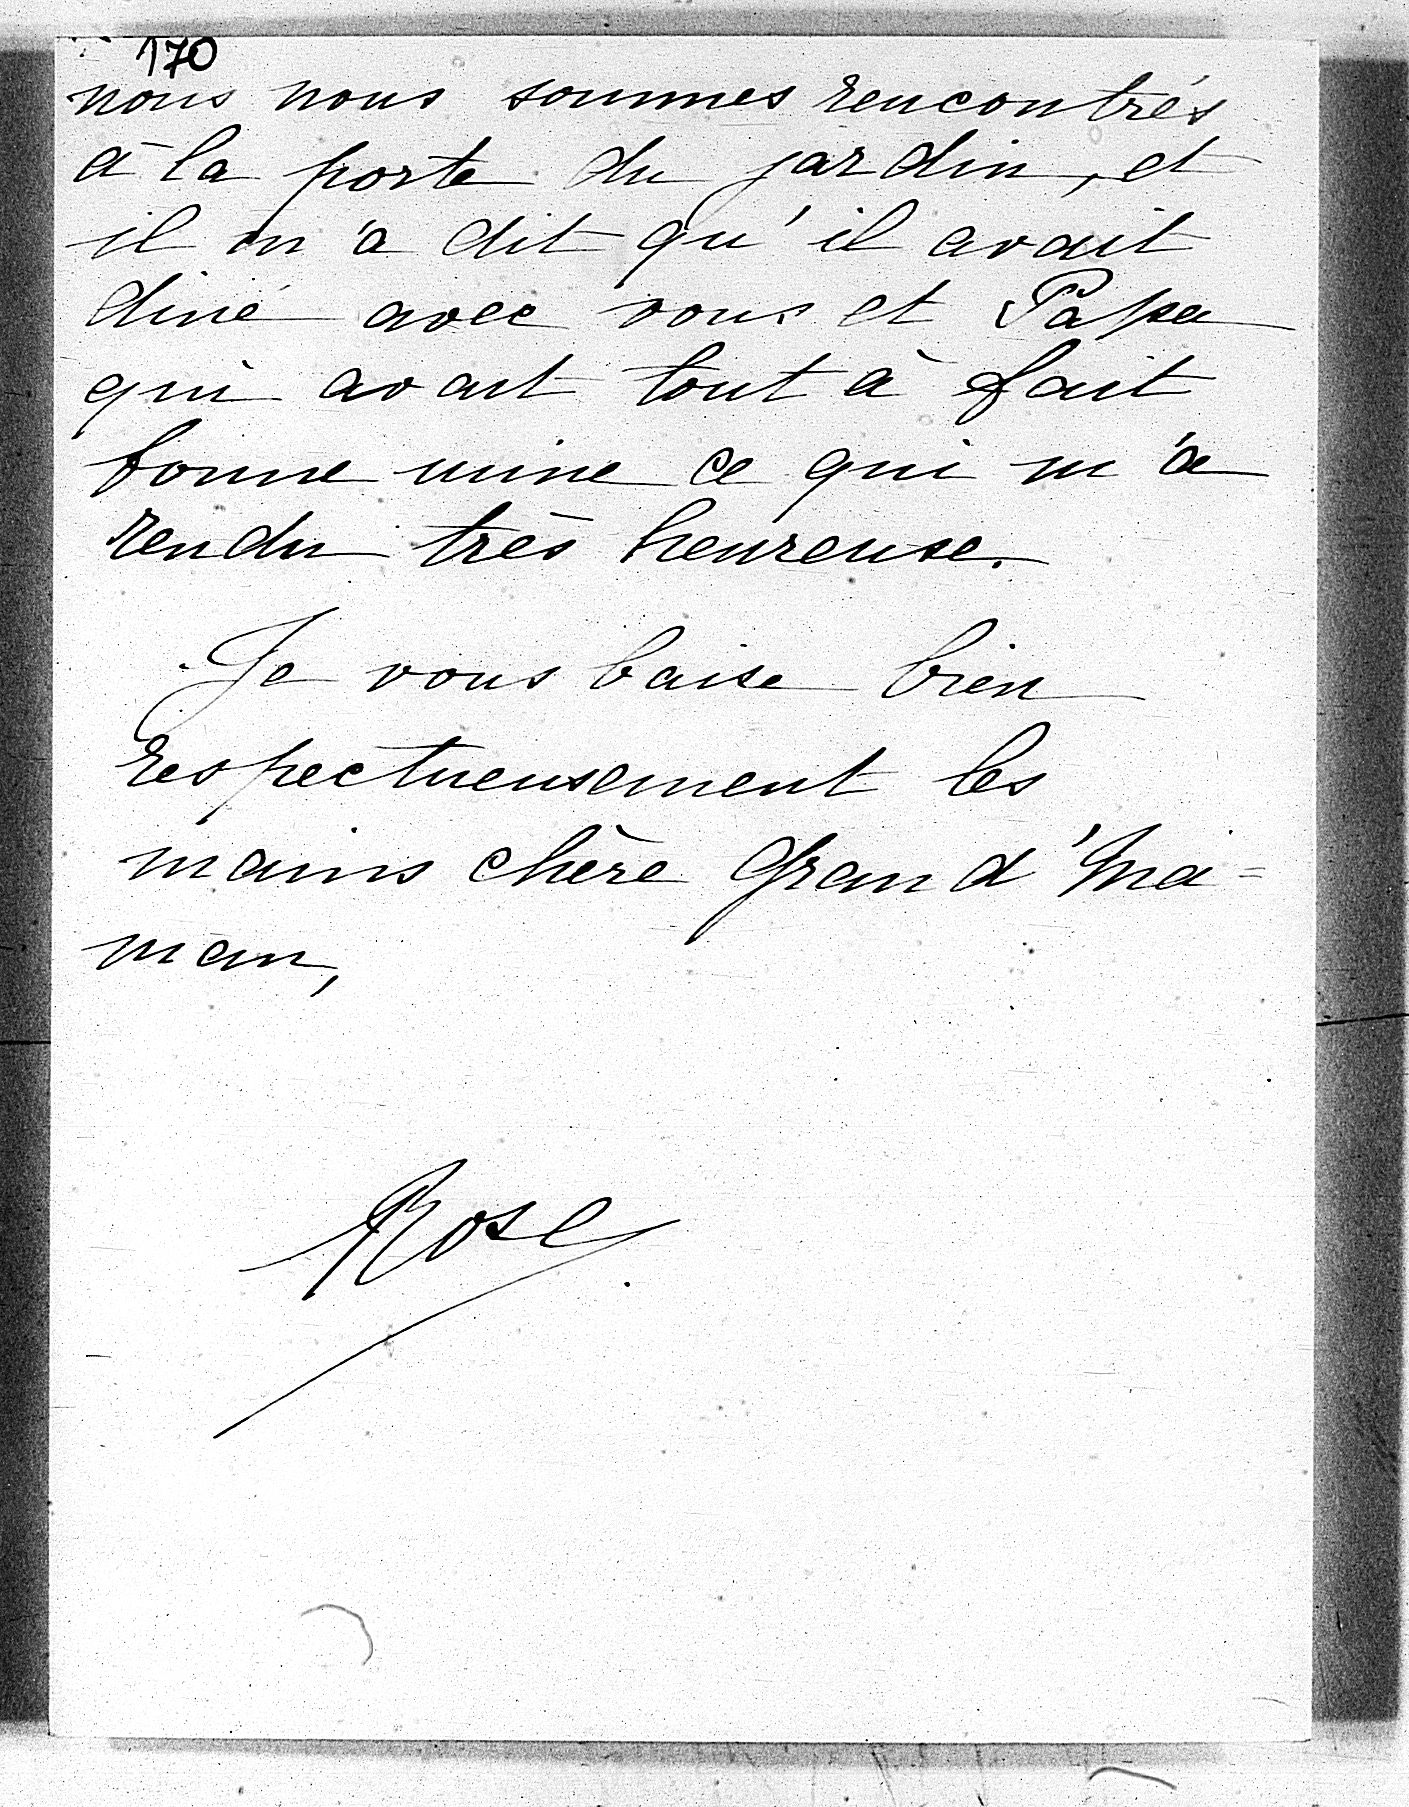 170
nous nous sommes rencontrés
à la porte du jardin, et
il m'a dit qu'il avait
diné avec vous et Papa
qui avait tout à fait
bonne mine ce qui m'a
rendu très heureuse.
Je vous baise bien
respectueusement les
mains chère Grand'Ma=
man,
Rose